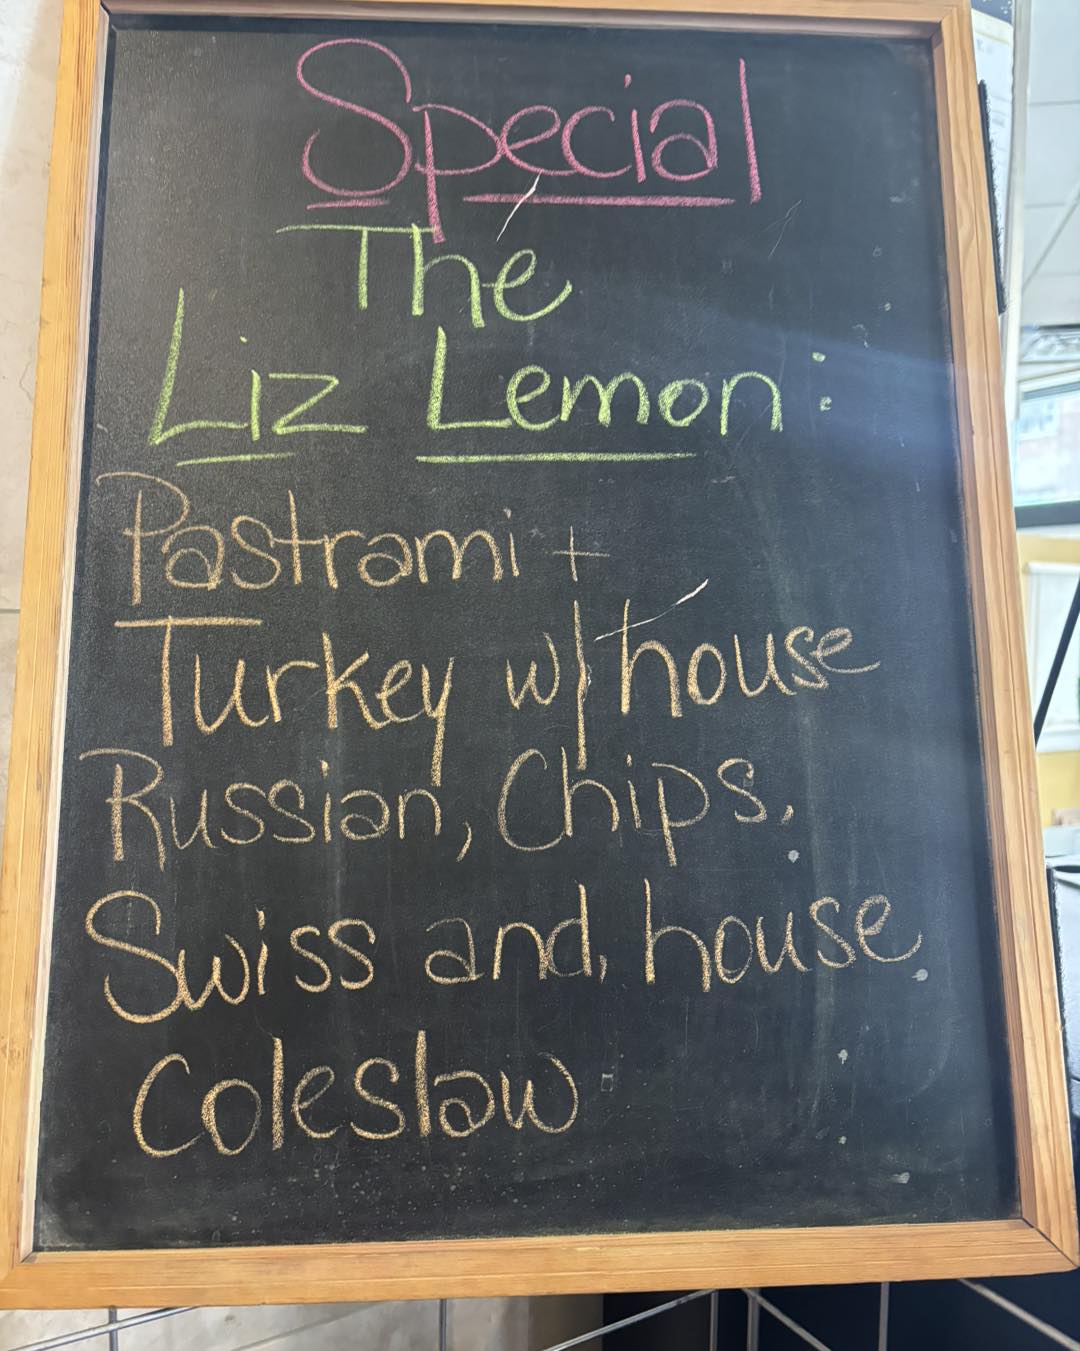 Special
The
Liz Lemon:
Pastrami +
Turkey w/ house
Russian, Chips,
Swiss and, house
Coleslaw